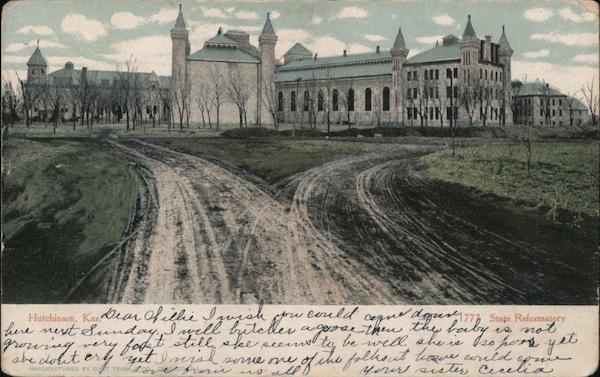 Hutchinson, Kas
1777 State Reformatory
Dear Lillie I wish you could come down
here next Sunday. I will butcher a goose then the baby is not
growing very fast still she seems to be well. she is so poor yet
she dont cry yet I wish some one of the folks at home could come
us all your sister Cecelia
MANUFACTURED BY CURT TEICH